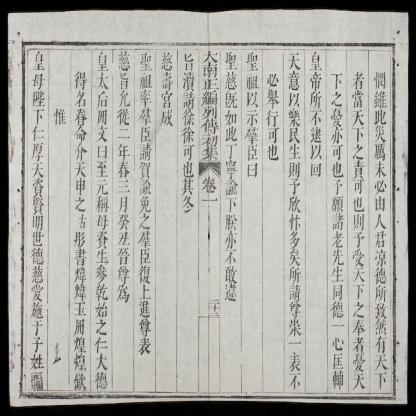 憫雖此災厲未必由人君凉德所致然有天下
者當天下之責可也則予受天下之奉者憂天
下之憂亦可也予願諸老先生同德一心匡輔
皇帝所不逮以回
天意以樂民生則予欣怀多矣所請尊崇一表不
必舉行可也
聖祖以示羣臣曰
聖慈旣如此丁寧謙下朕亦不敢違
旨瀆請徐徐可也其冬
大南正編列傳初集 卷一 二十三
慈壽宮成
聖祖率羣臣請賀諭免之羣臣復上進尊表
慈旨允從二年春三月癸丑晉尊爲
皇太后冊文曰至元稱母養生參乾始之仁大德
得名眷命介天申之右彤書煒煒玉冊煌煌歟
惟
皇母陛下仁厚天資賢明世德慈愛施于子姓